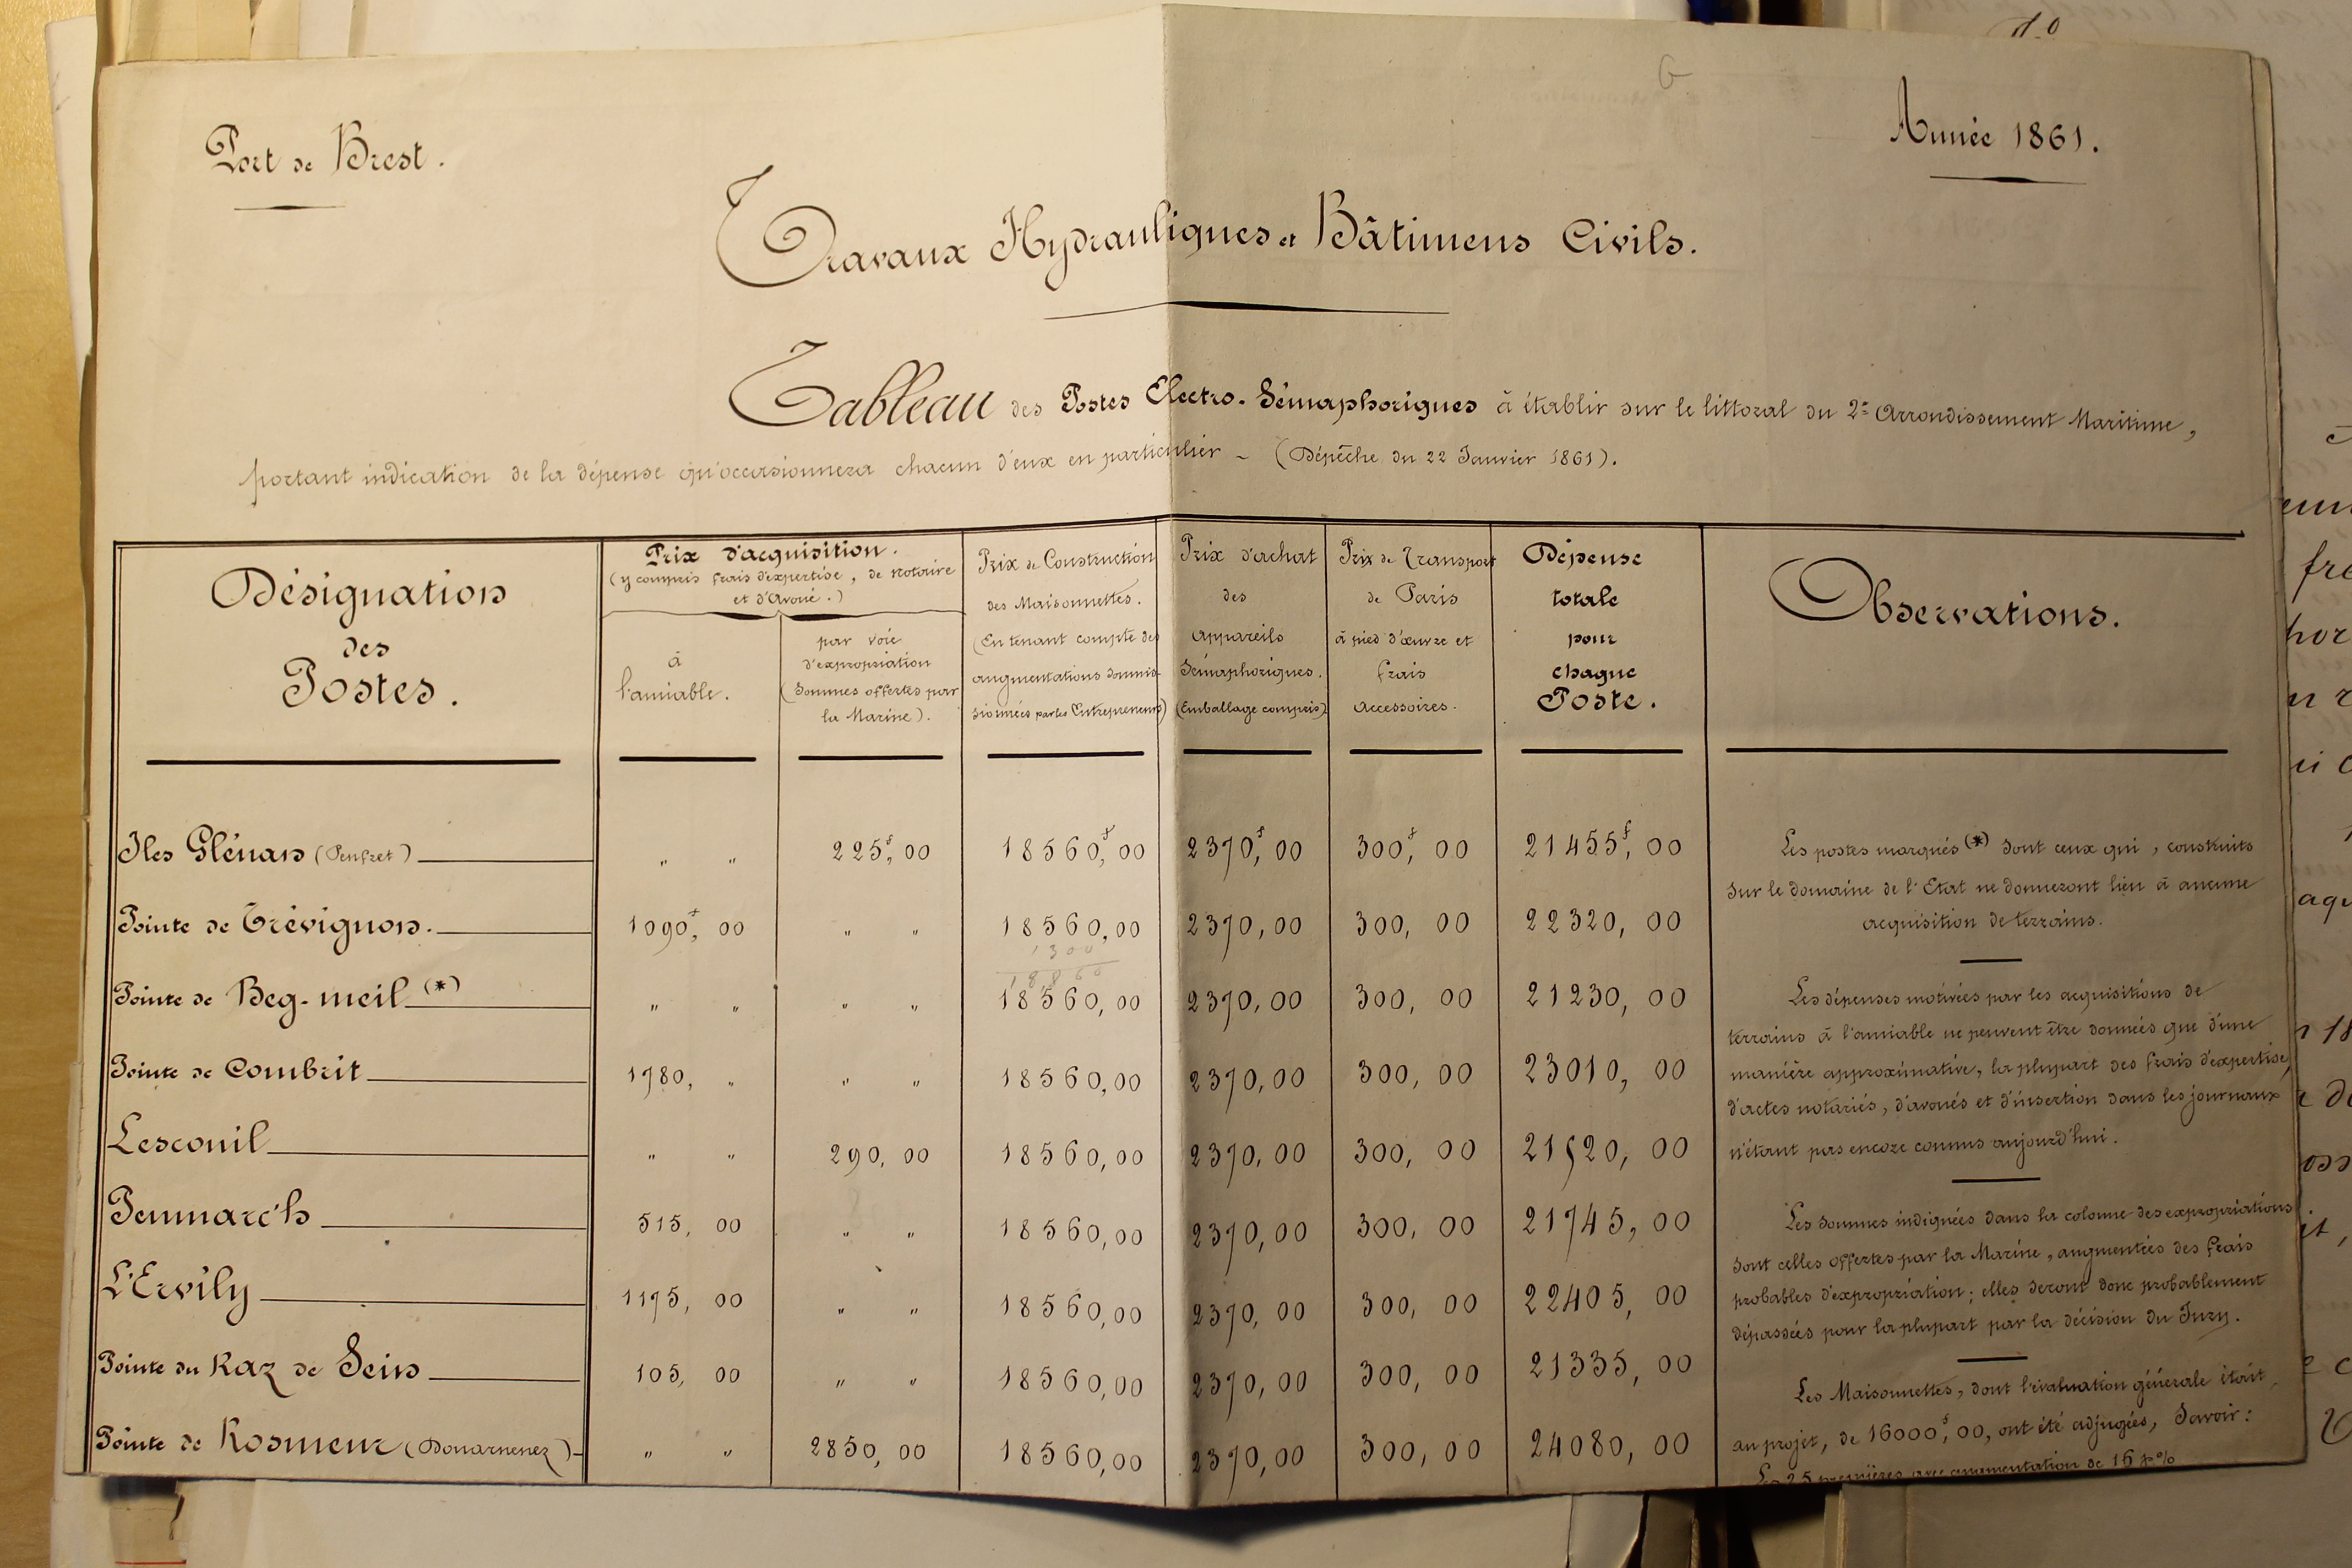 Port de Brest.
Année 1861.
Travaux Hydrauliques et Bâtimens Civils.
Tableau des Postes Electro-Sémaphoriques à établir sur le littoral du 2e Arrondissement Maritime,
portant indication de la dépense qu'occasionnera chacun d'eux en particulier - (Dépêche du 22 Janvier 1861).
Désignation
des
Postes.
Prix d'acquisition.
(y compris frais d'expertise, de notaire
et d'Avoué.)
à
l'amiable.
par voie
d'expropriation
(Sommes offertes par
la Marine).
Prix de Construction
des Maisonnettes.
(En tenant compte des
augmentations soumis-
sionnées par les Entrepreneurs)
Prix d'achat
des
Appareils
Sémaphoriques.
(Emballage compris)
Prix de Transport
de Paris
à pied d'œuvre et
frais
Accessoires.
Dépense
totale
pour
chaque
Poste.
Observations.
Iles Glénans (Penfret) " " 225f,00 18560f,00 2370f,00 300f,00 21455f,00
Pointe de Trévignon. 1090f,00 " " 18560,00 2370,00 300,00 22320,00
1300
Pointe de Beg-meil (*) " " " " 18560,00 2370,00 300,00 21230,00
Pointe de Combrit 1780, " " " 18560,00 2370,00 300,00 23010,00
Lesconil " " 290,00 18560,00 2370,00 300,00 21520,00
Penmarc'h 515,00 " " 18560,00 2370,00 300,00 21745,00
L'Ervily 1175,00 " " 18560,00 2370,00 300,00 22405,00
Pointe du Raz de Sein 105,00 " " 18560,00 2370,00 300,00 21335,00
Pointe de Rosmeur (Douarnenez) " " 2850,00 18560,00 2370,00 300,00 24080,00
Les postes marqués (*) sont ceux qui, construits
sur le domaine de l'Etat ne donneront lieu à aucune
acquisition de terrains.
Les dépenses motivées par les acquisitions de
terrains à l'amiable ne peuvent être données que d'une
manière approximative, la plupart des frais d'expertise,
d'actes notariés, d'avoués et d'insertion dans les journaux
n'étant pas encore connus aujourd'hui.
Les sommes indiquées dans la colonne des expropriations
sont celles offertes par la Marine, augmentées des frais
probables d'expropriation; elles seront donc probablement
dépassées pour la plupart par la décision du Jury.
Les Maisonnettes, dont l'évaluation générale était,
au projet, de 16000f,00, ont été adjugées, Savoir:
Les 25 premières avec augmentation de 16 p%